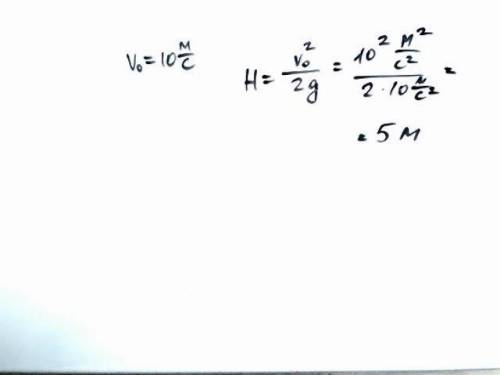 V₀ = 10 м/с
H = v₀²/2g = 10² м²/с² / 2·10 м/с² =
= 5 м